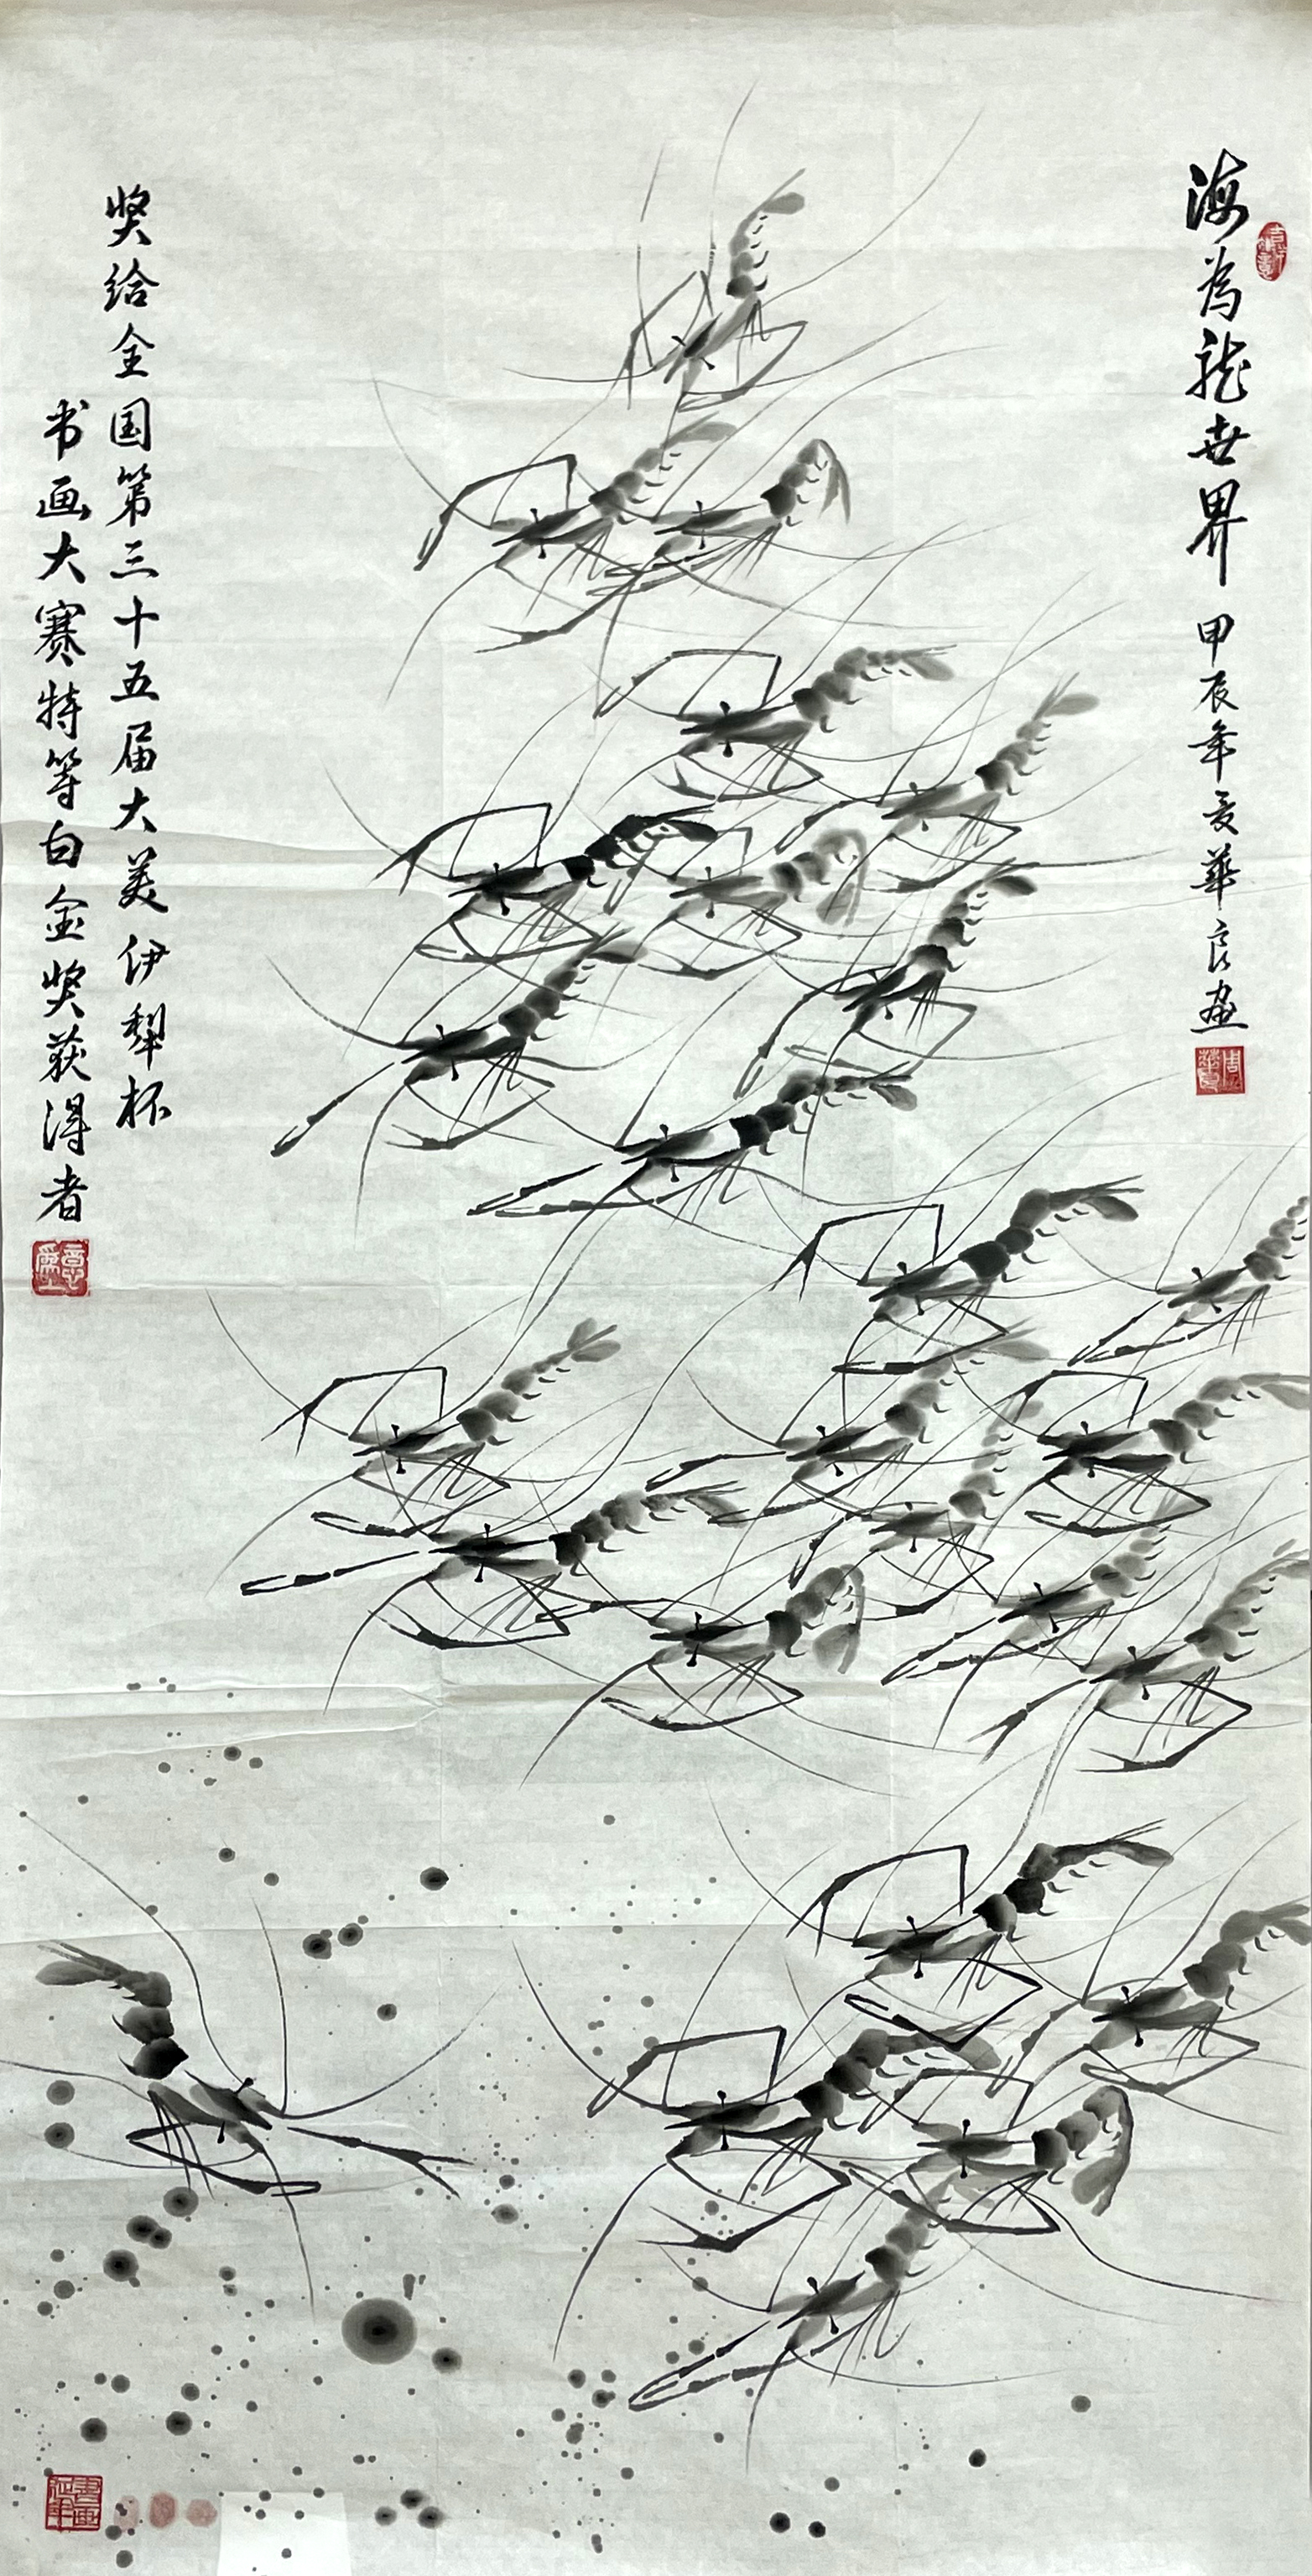 海为龙世界 甲辰年 夏 华良画
奖给全国第三十五届大美伊犁杯
书画大赛特等白金奖获得者